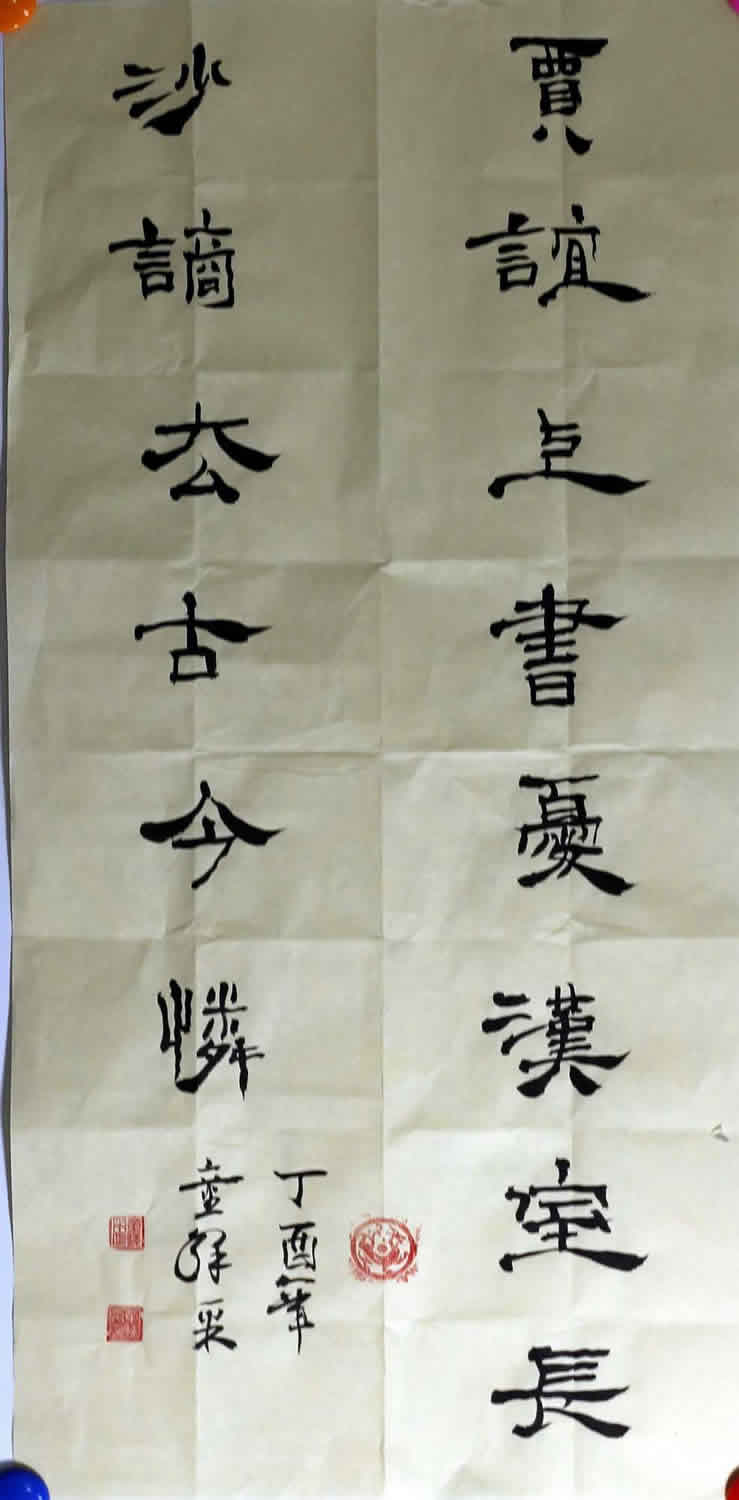 賈誼上書憂漢室長
沙謫去古今憐
丁酉年
童